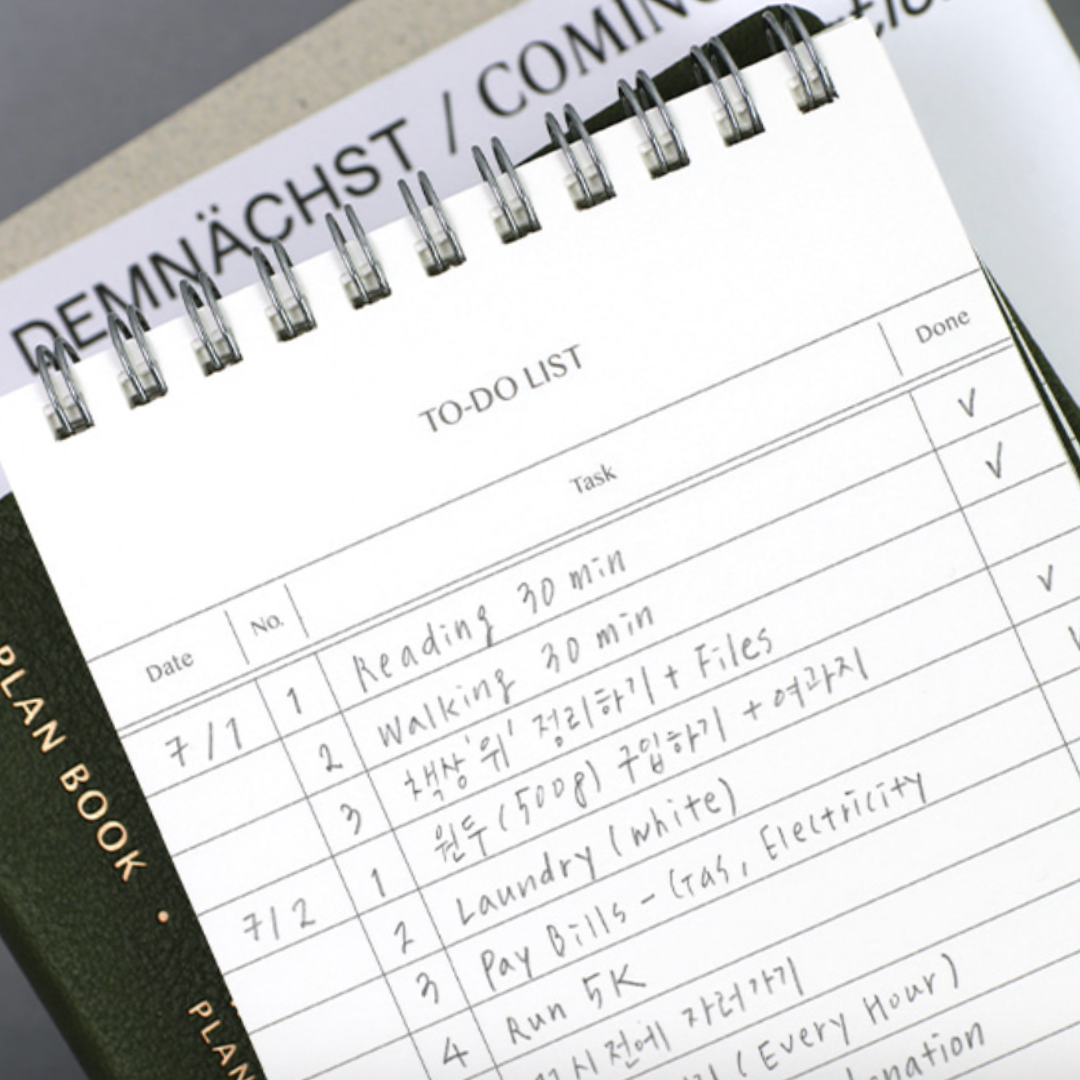 DEMNÄCHST / COMING
TO-DO LIST
Date No. Task Done
7/1 1 Reading 30 min √
2 Walking 30 min √
3 책상 '위' 정리하기 + Files
7/2 1 원두 (500g) 구입하기 + 여과지 √
2 Laundry (white)
3 Pay Bills - Gas, Electricity
4 Run 5K
시 전에 자러가기
(Every Hour)
PLAN BOOK •
PLAN